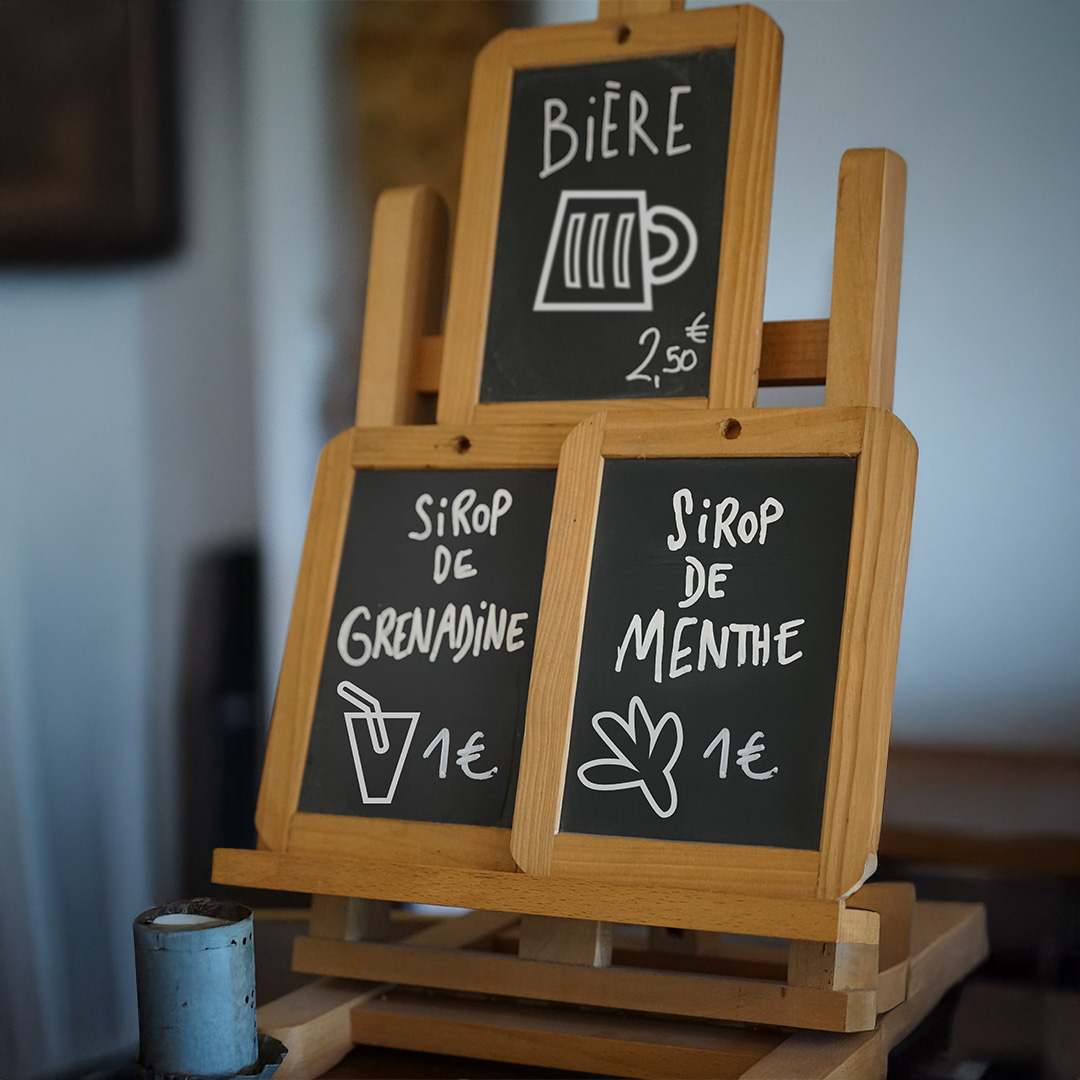 BiÈRE
2,50€
SiROP
DE
GRENADiNE
1€
SiROP
DE
MENTHE
1€